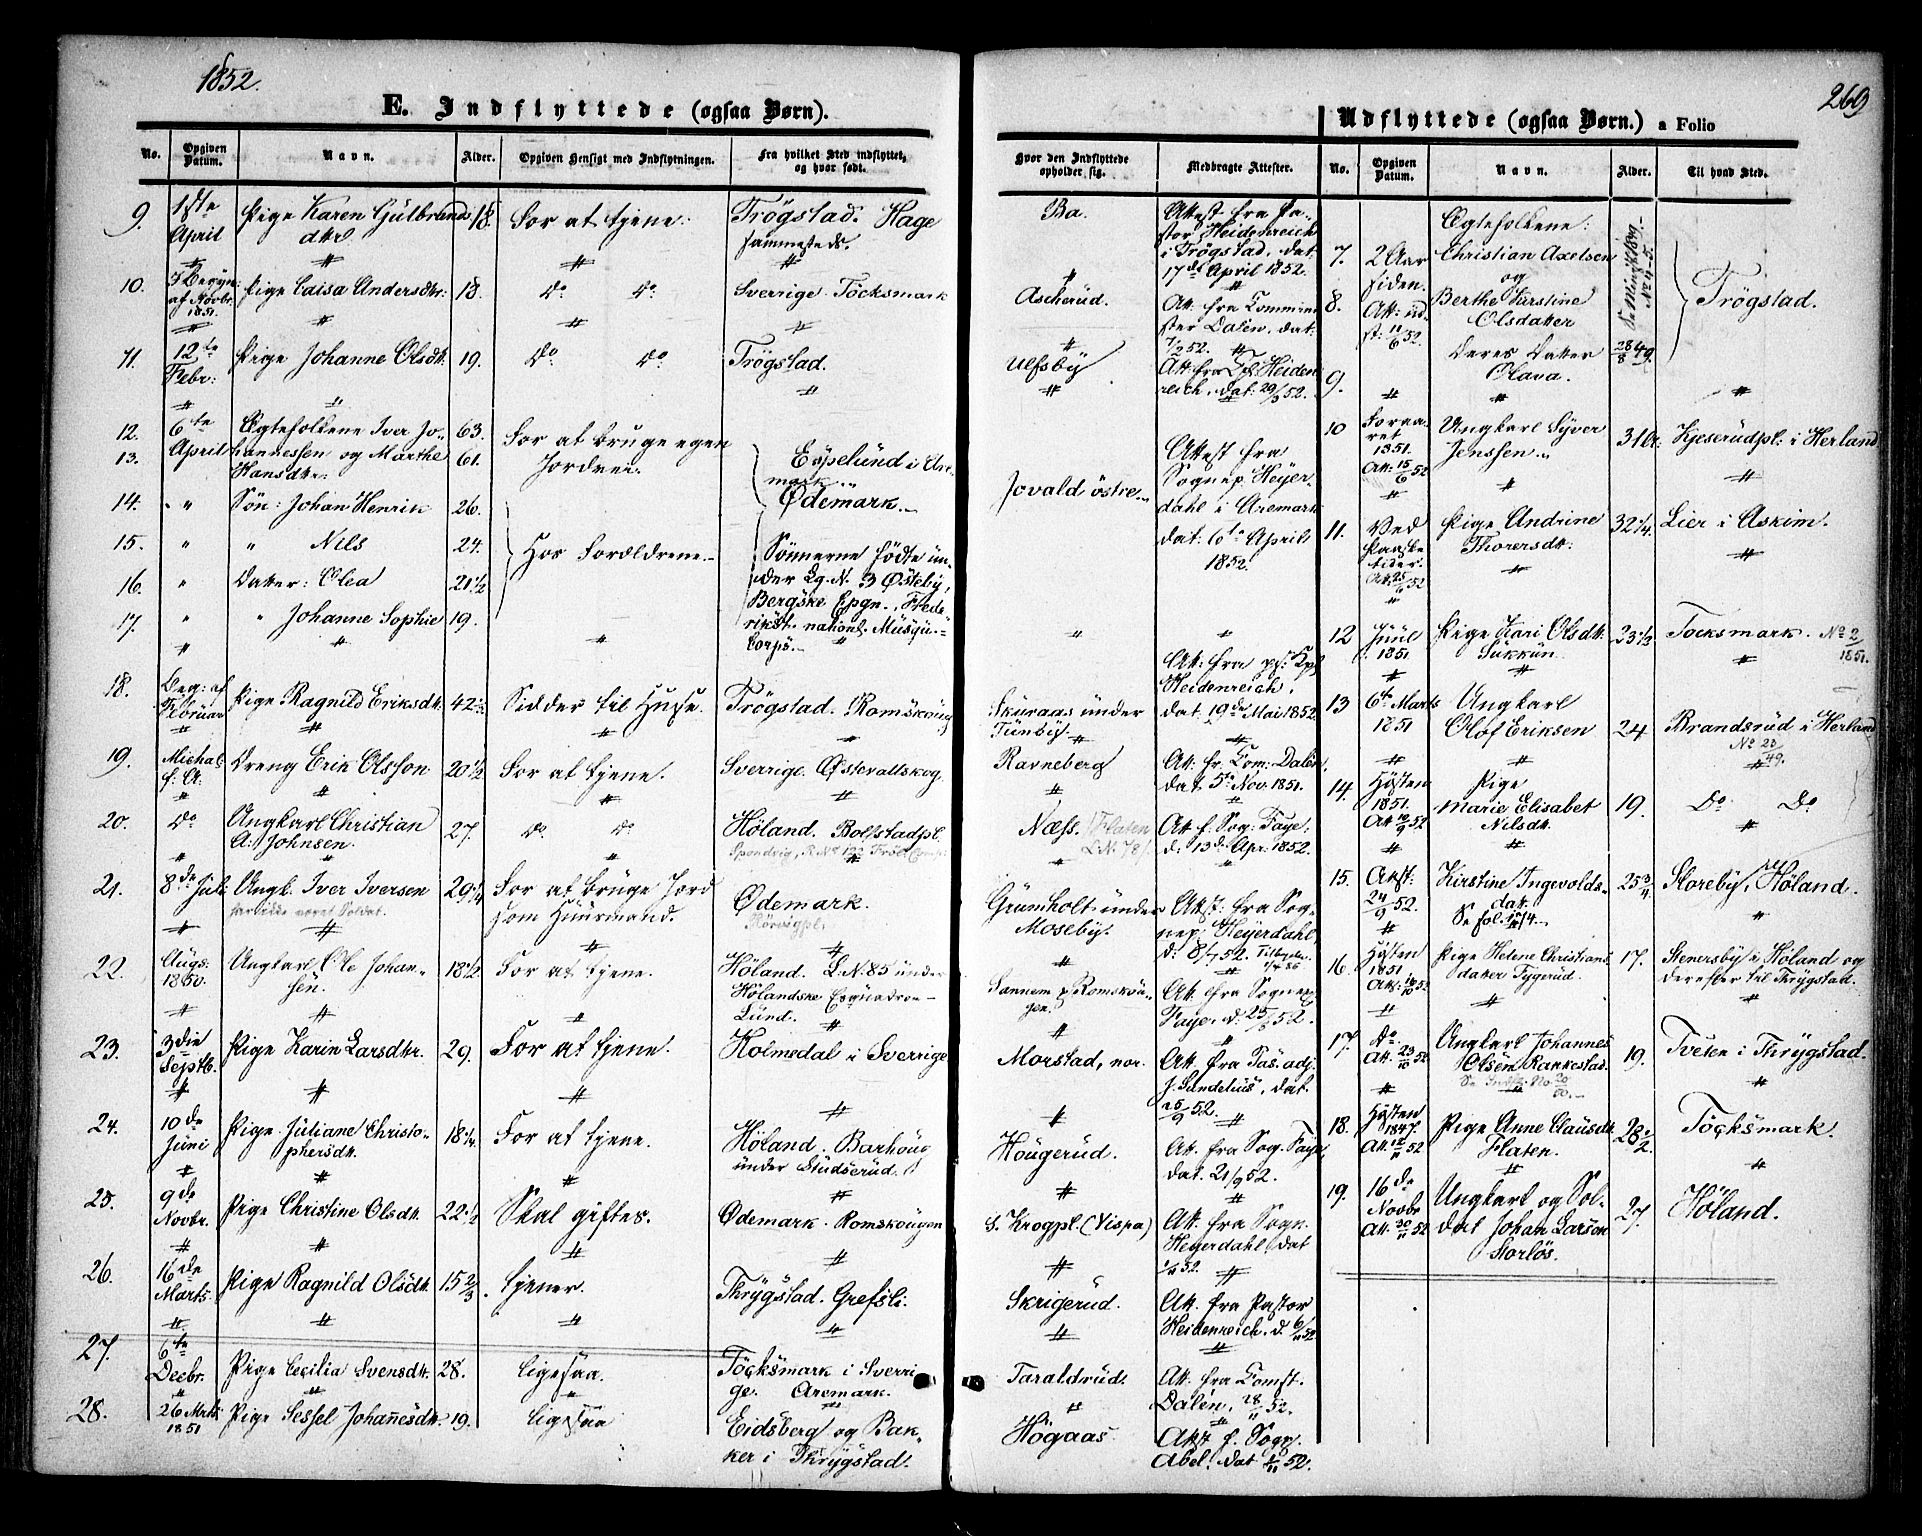 1852.
269
E. Indflyttede (ogsaa Børn).
Udflyttede (ogsaa Børn.) a Folio
No. Opgiven Datum. Navn. Alder. Opgiven Hensigt med Indflytningen. Fra hvilket Sted indflyttet, og hvor født. Hvor den Indflyttede opholder sig. Medbragte Attester.
9. 1ste April Pige Karen Gulbrands dtr 18. For at tjene. Trögstad. Hage sammesteds. Ba. Attest fra Pastor Heidenreich i Trögstad, dat. 17de April 1852.
10. af Novbr. 1851. Pige Caisa Andersdtr: 18. do do Sverrige. Töcksmark Ascherud. Att. fra Comminister Dalén, dat. 7/2 52.
11. 12te Febr: Pige Johanne Olsdt. 19. do do Trögstad. Ulfsby Att. fra Heidenreich, dat. 29/3 52.
12. 6te April Ægtefolkene Iver Jo- 63. For at bruge egen
13. hannessen og Marthe Hansdtr. 61. Jordvei. Espelund i Aremark. Ødemark. Jovald östre. Attest fra Sognep. Heyerdahl i Aremark dat. 6te April 1852.
14. " Søn: Johan Henrik 26.
15. " " Nils 24. Hos Forældrene. Sönnerne födte under Lg. N. 3 Østeby, Bergske Cpgn., Frederikst. nationl. Musqu. Corps.
16. " Datter: Olea 21 1/2
17. " " Johanne Sophie 19.
18. Beg: af Februar Pige Ragnild Eriksdt. 42 Sidder til Huse. Trögstad. Romskoug Skuraas under Tunby. Att. fra Heidenreich, dat 19de Mai 1852
19. Michal. f. A. Dreng Erik Olsson 20 1/2 For at tjene. Sverrige. Østervallskog Ravneberg Att. fr. Com: Dalén, dat 5te Nov. 1851.
20. do Ungkarl Christian A. Johnsen. 27. do do Höland. Bolstadpl. Næss. Flaten Att. f. Sog: Faye, d: 13de Apr. 1852.
21. 8de Juli Ungk. Iver Iversen 29 1/4 For at bruge Jord som Huusmand. Ødemark. Grumholt under Moseby. Attst. fra Sognep. Heyerdahl, d: 8/7 52.
har ikke været Soldat.
22. Augs. 1850. Ungkarl Ole Johansen 18 1/2 For at tjene. Höland. L.N. 85 under Hölandske Esquadron Lund. Sannem p. Romskougen. Att. fra Sognep. Faye, d: 25/ 52.
23. 3die Septb. Pige Karin Larsdtr. 29. For at tjene. Holmedal i Sverrige Morstad, nor. Att. fra Pas. adj. J. Sundelius, dat. 25/9 52.
24. 10de Juni Pige Juliane Christophersdt. 18 1/4 For at tjene. Höland. Barhoug under Studserud. Hougerud. Att. fra Sog. Faye, dat. 21/9 52.
25. 9de Novbr. Pige Christine Olsdt. 22 1/2 Skal giftes. Ødemark. Romskougen S. Krogpl. (Vispa) Att. fra Sogn. Heyerdahl, dat 52.
26. 16de Marts. Pige Ragnild Olsdt. 15 2/3 tjener. Thrygstad. Grefsli. Skrigerud. Att. fra Pastor Heidenreich. d. 6/11 52
27. 6te Decbr. Pige Cecilia Svensdt. 28. ligesaa. Töcksmark i Sverrige. Aremark. Taraldrud. Att. fra Comst. Dalén, 28/11 52.
28. 26 Mrts 1851 Pige Sessel Johanesdt. 19. ligesaa Eidsberg og Bakker i Thrygstad. Högaas. Attst f. Sogp. Abel. dat 52.
No. Opgiven Datum. Navn. Alder. Til hvad Sted.
Ægtefolkene:
7. 2 Aar siden. Christian Axelsen og
8. Att: udst: 11/6 52. Berthe Kirstine Olsdatter Trögstad.
9. Deres Datter Olava. 28/8 49.
10 Foraaret 1851 Att. 15/6 52 Ungkarl Syver Jenssen. 31 Kjeserudpl. i Herland
11. Ved Paasketider. Att. 25/ 52 Pige Andrine Thorersdt. 32 1/4. Lier i Askim.
12 Juul 1851 Pige Kari Olsdt. 23 1/2 Tocksmark. No 2/1851.
13 6te Marts 1851 Ungkarl Olof Eriksen 24 Brandsrud i Herland No 23/49.
14. Hösten 1851. Att 10/9 52 Pige Marie Elisabet Nilsdt. 19. Do Do
15. Attst: 24/9 52. Kirstine Ingevoldsdatt. 25 3/4 Storeby, Höland.
16. Hösten 1851 Att. 52 Pige Helene Christiansdatter Tygerud. 17. Stenersby i Höland og derefter til Thrygstad.
17. do Att. 23/10 52 Ungkarl Johannes Olsen Rakkestad. 19. Tveten i Thrygstad.
18. Hösten 1847. Att. 12/11 52 Pige Anne Clausdt. Flaten. 28 Töcksmark.
19. 16de Novbr Att. 30/11 52 Ungkarl og Soldat Johan Larsen Storlös. 27 Höland.